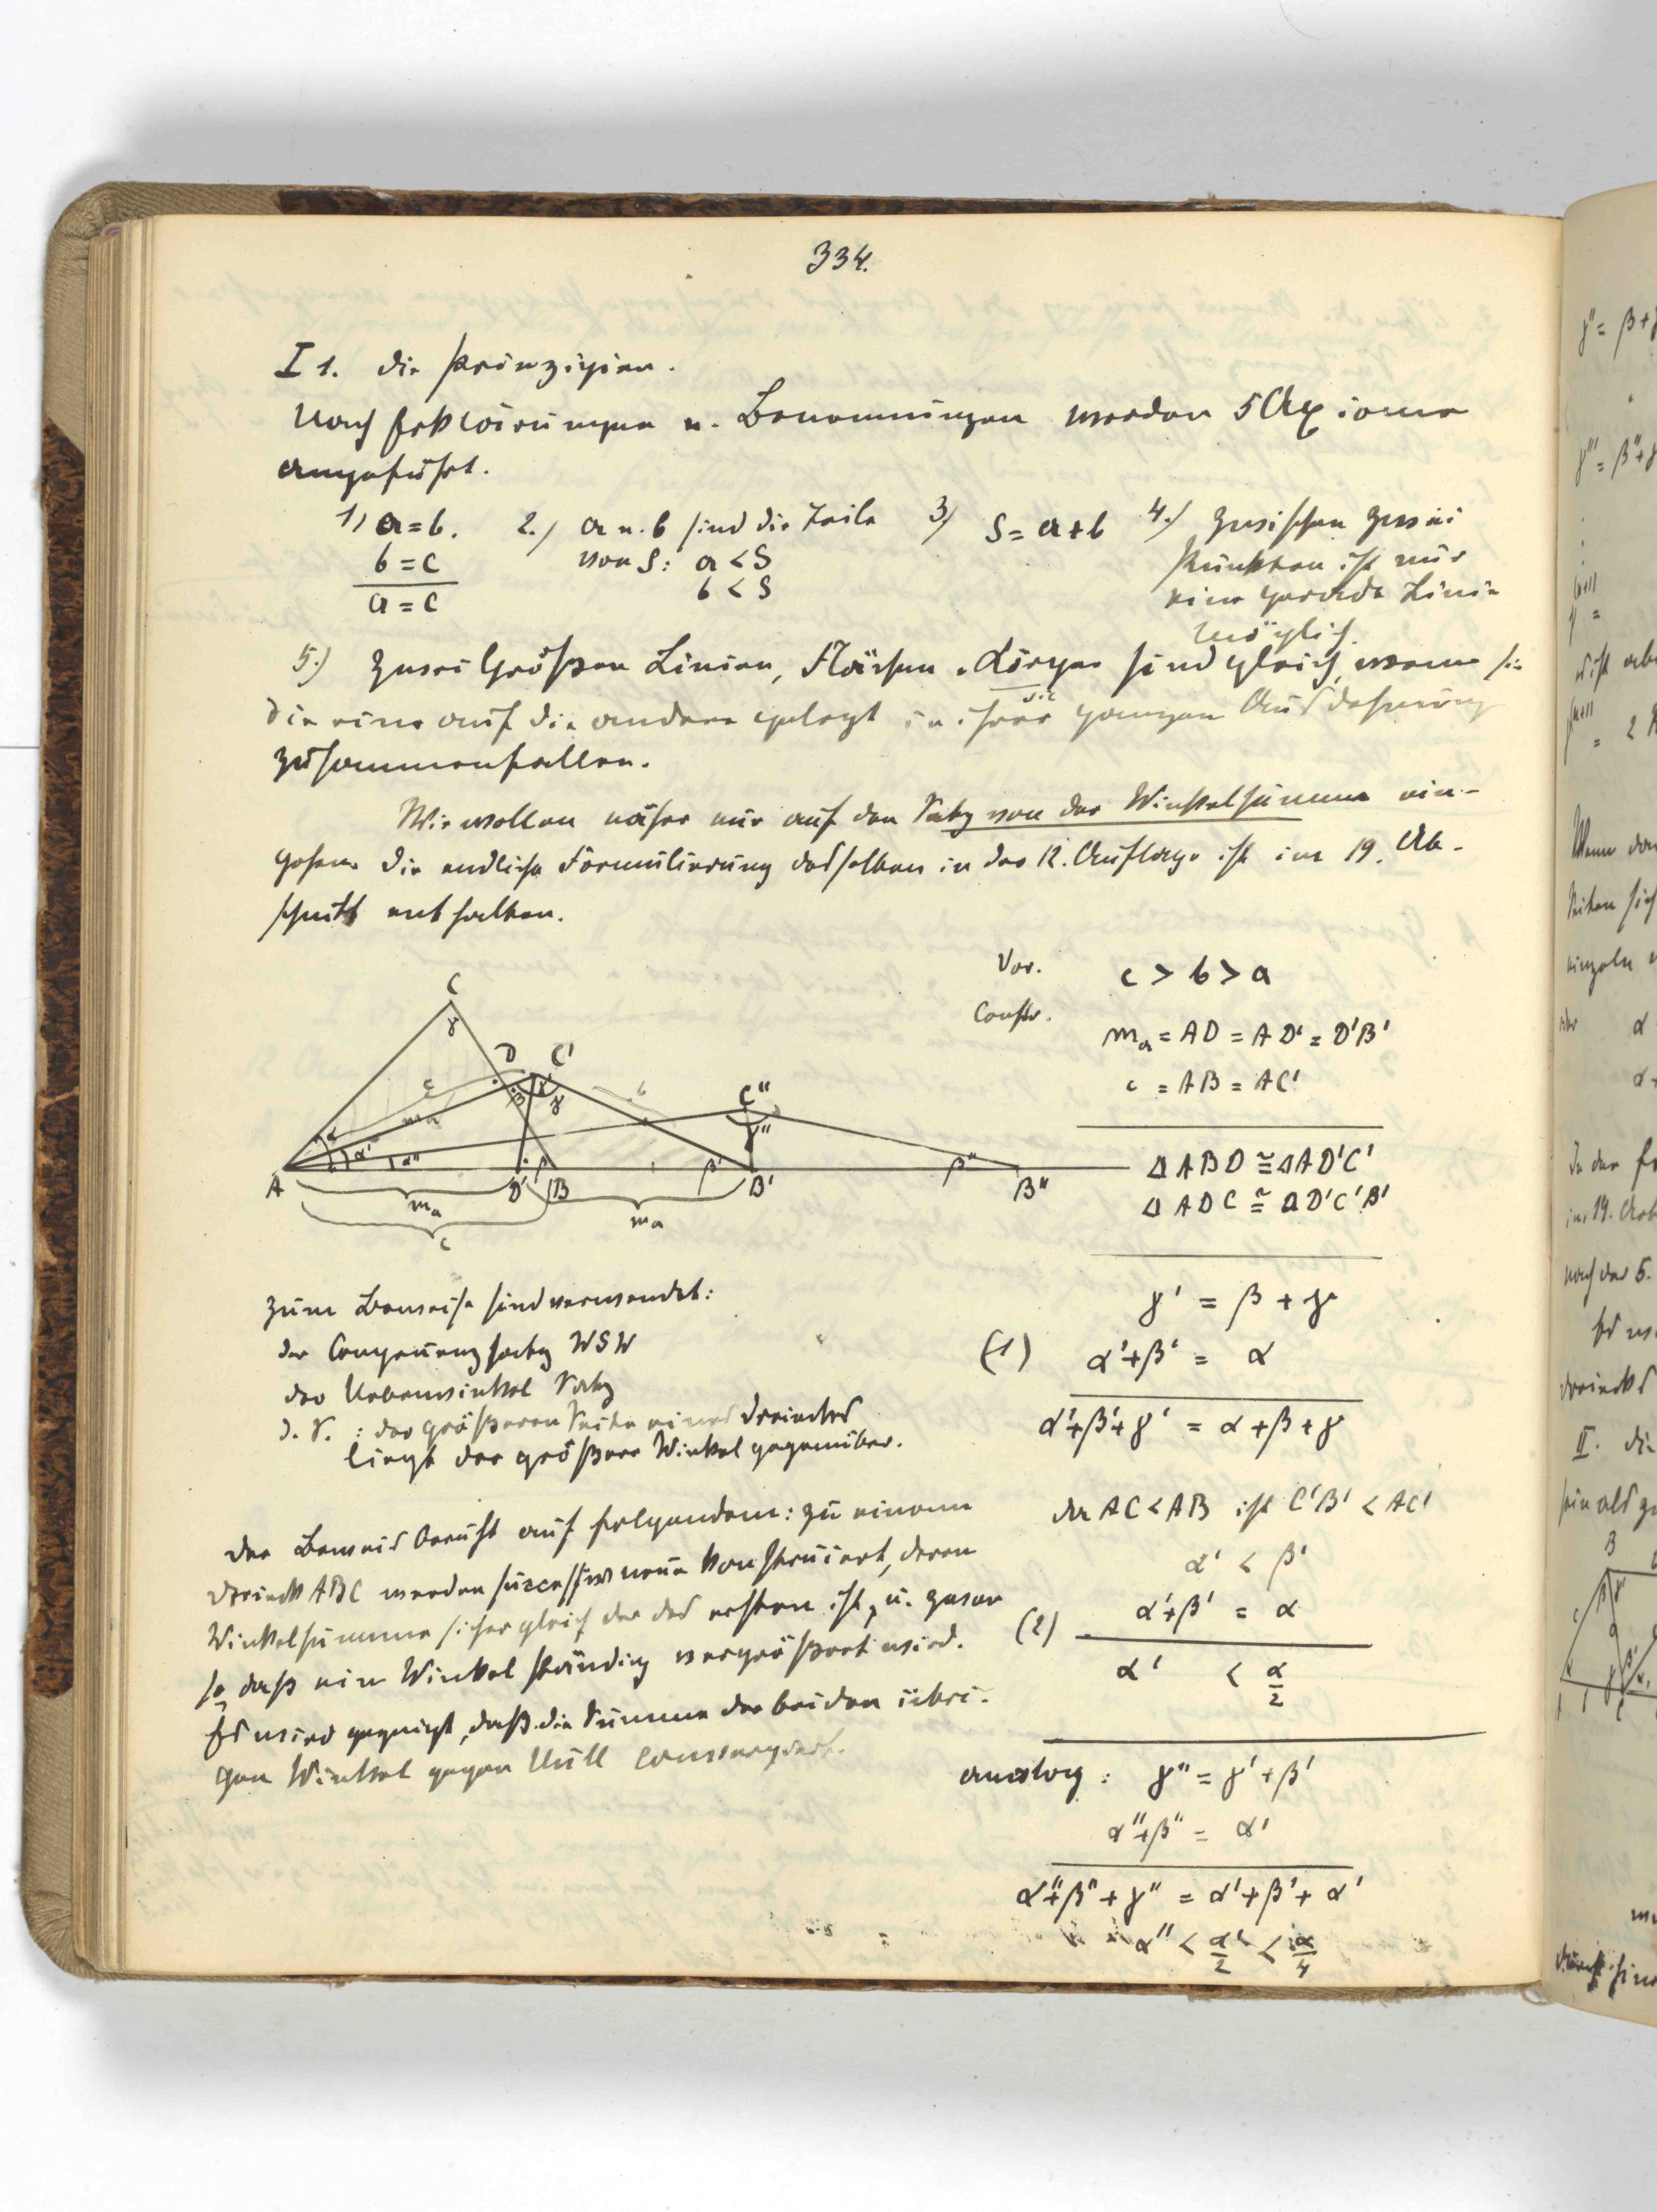 334.
I 1. Die Prinzipien.
Nach Erklärungen u. Benennungen werden 5 Axiome
angeführt.
1) a = b.
b = c
a = c
2.) a u. b sind die Teile
von S: a < S
b < S
3) S = a + b
4.) Zwischen zwei
Punkten ist nur
eine gerade Linie
möglich.
5.) Zwei Größen Linien, Flächen, Körper sind gleich, wenn sie
die eine auf die andere gelegt in ihrer ganzen Ausdehnung
zusammenfallen.
Wir wollen näher nur auf den Satz von der Winkelsumme ein-
gehen. Die endliche Formulierung desselben in der 12. Auflage ist im 19. Ab-
schnitt enthalten.
Vor. c > b > a
Constr. mₐ = AD = AD' = D'B'
c = AB = AC'
Δ ABD ≅ Δ AD'C'
Δ ADC ≅ Δ D'C'B'
C
γ
D C'
c b C''
mₐ β γ γ''
α α' α'' β β' β''
A D' B B' B''
mₐ mₐ
c
Zum Beweise sind verwendet:
der Congruenzsatz WSW
der Nebenwinkel Satz
d. S. : der größeren Seite eines Dreiecks
liegt der größere Winkel gegenüber.
γ' = β + γ
(1) α' + β' = α
α' + β' + γ' = α + β + γ
Der Beweis beruht auf folgendem: zu einem
Dreieck ABC werden successiv neue konstruiert, deren
Winkelsumme sicher gleich der des ersten ist, u. zwar
so, daß ein Winkel ständig vergrößert wird.
Es wird gezeigt, daß die Summe der beiden übri-
gen Winkel gegen Null convergiert.
da AC < AB ist C'B' < AC'
α' < β'
(2) α' + β' = α
α' < α/2
analog: γ'' = γ' + β'
α'' + β'' = α'
α'' + β'' + γ'' = α' + β' + α'
α'' < α'/2 < α/4